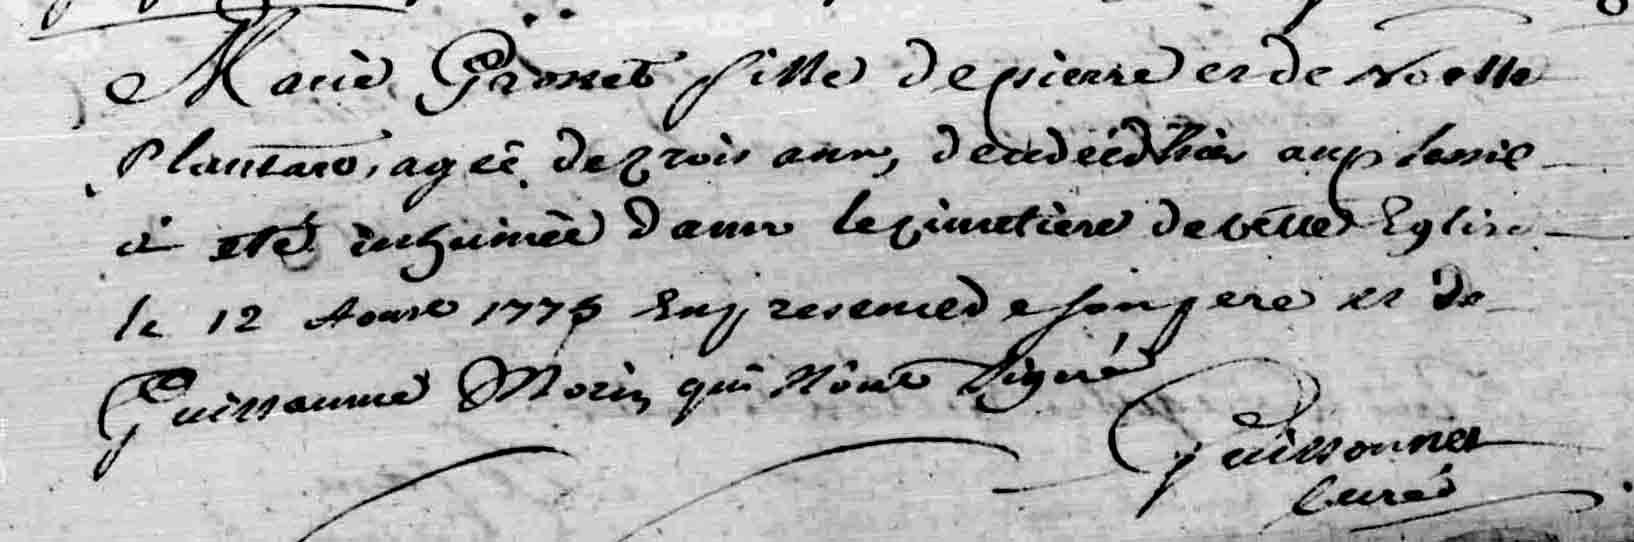 Marie Grosset fille de pierre et de Noelle
Plantard, agée de trois ans, decedée hier au plessie
a été inhumée dans le cimetière de cette Eglise
le 12 Aoust 1775 En presence de son pere et de
Guillaume Morin qui n'ont signé
Guillonnet
Curé